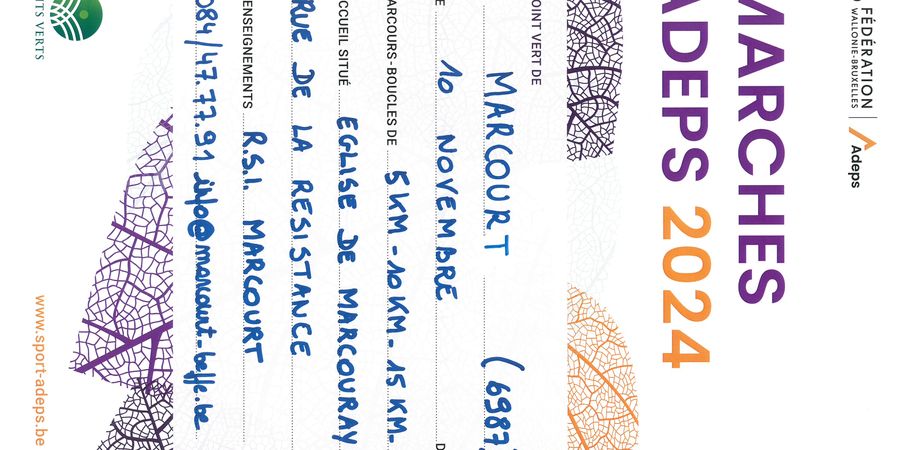 FÉDÉRATION
WALLONIE-BRUXELLES
Adeps
MARCHES
ADEPS 2024
POINT VERT DE
MARCOURT (6987)
10 NOVEMBRE
PARCOURS-BOUCLES DE 5 KM - 10 KM - 15 KM.
ACCUEIL SITUÉ EGLISE DE MARCOURAY
RUE DE LA RESISTANCE
RENSEIGNEMENTS R.S.I. MARCOURT
084/47.77.91 info@marcourt-beffe.be
www.sport-adeps.be